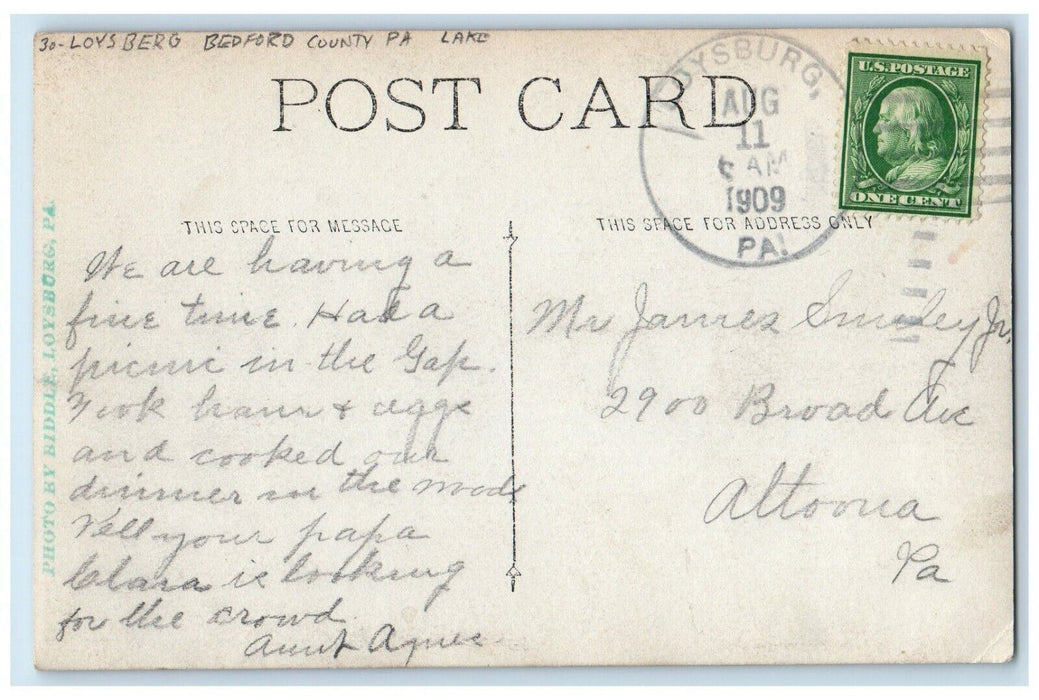 30-LOYSBERG BEDFORD COUNTY PA LAKE
POST CARD
LOYSBURG,
AUG
11
6 AM
1909
PA.
U.S. POSTAGE
ONE CENT
THIS SPACE FOR MESSAGE
THIS SPACE FOR ADDRESS ONLY
PHOTO BY BIDDLE, LOYSBURG, PA.
We are having a
fine time. Had a
picnic in the Gap.
Took ham & eggs
and cooked our
dinner in the woods
Tell your papa
Clara is looking
for the crowd.
Aunt Agnes
Mr James Smiley Jr.
2900 Broad Ave
Altoona
Pa